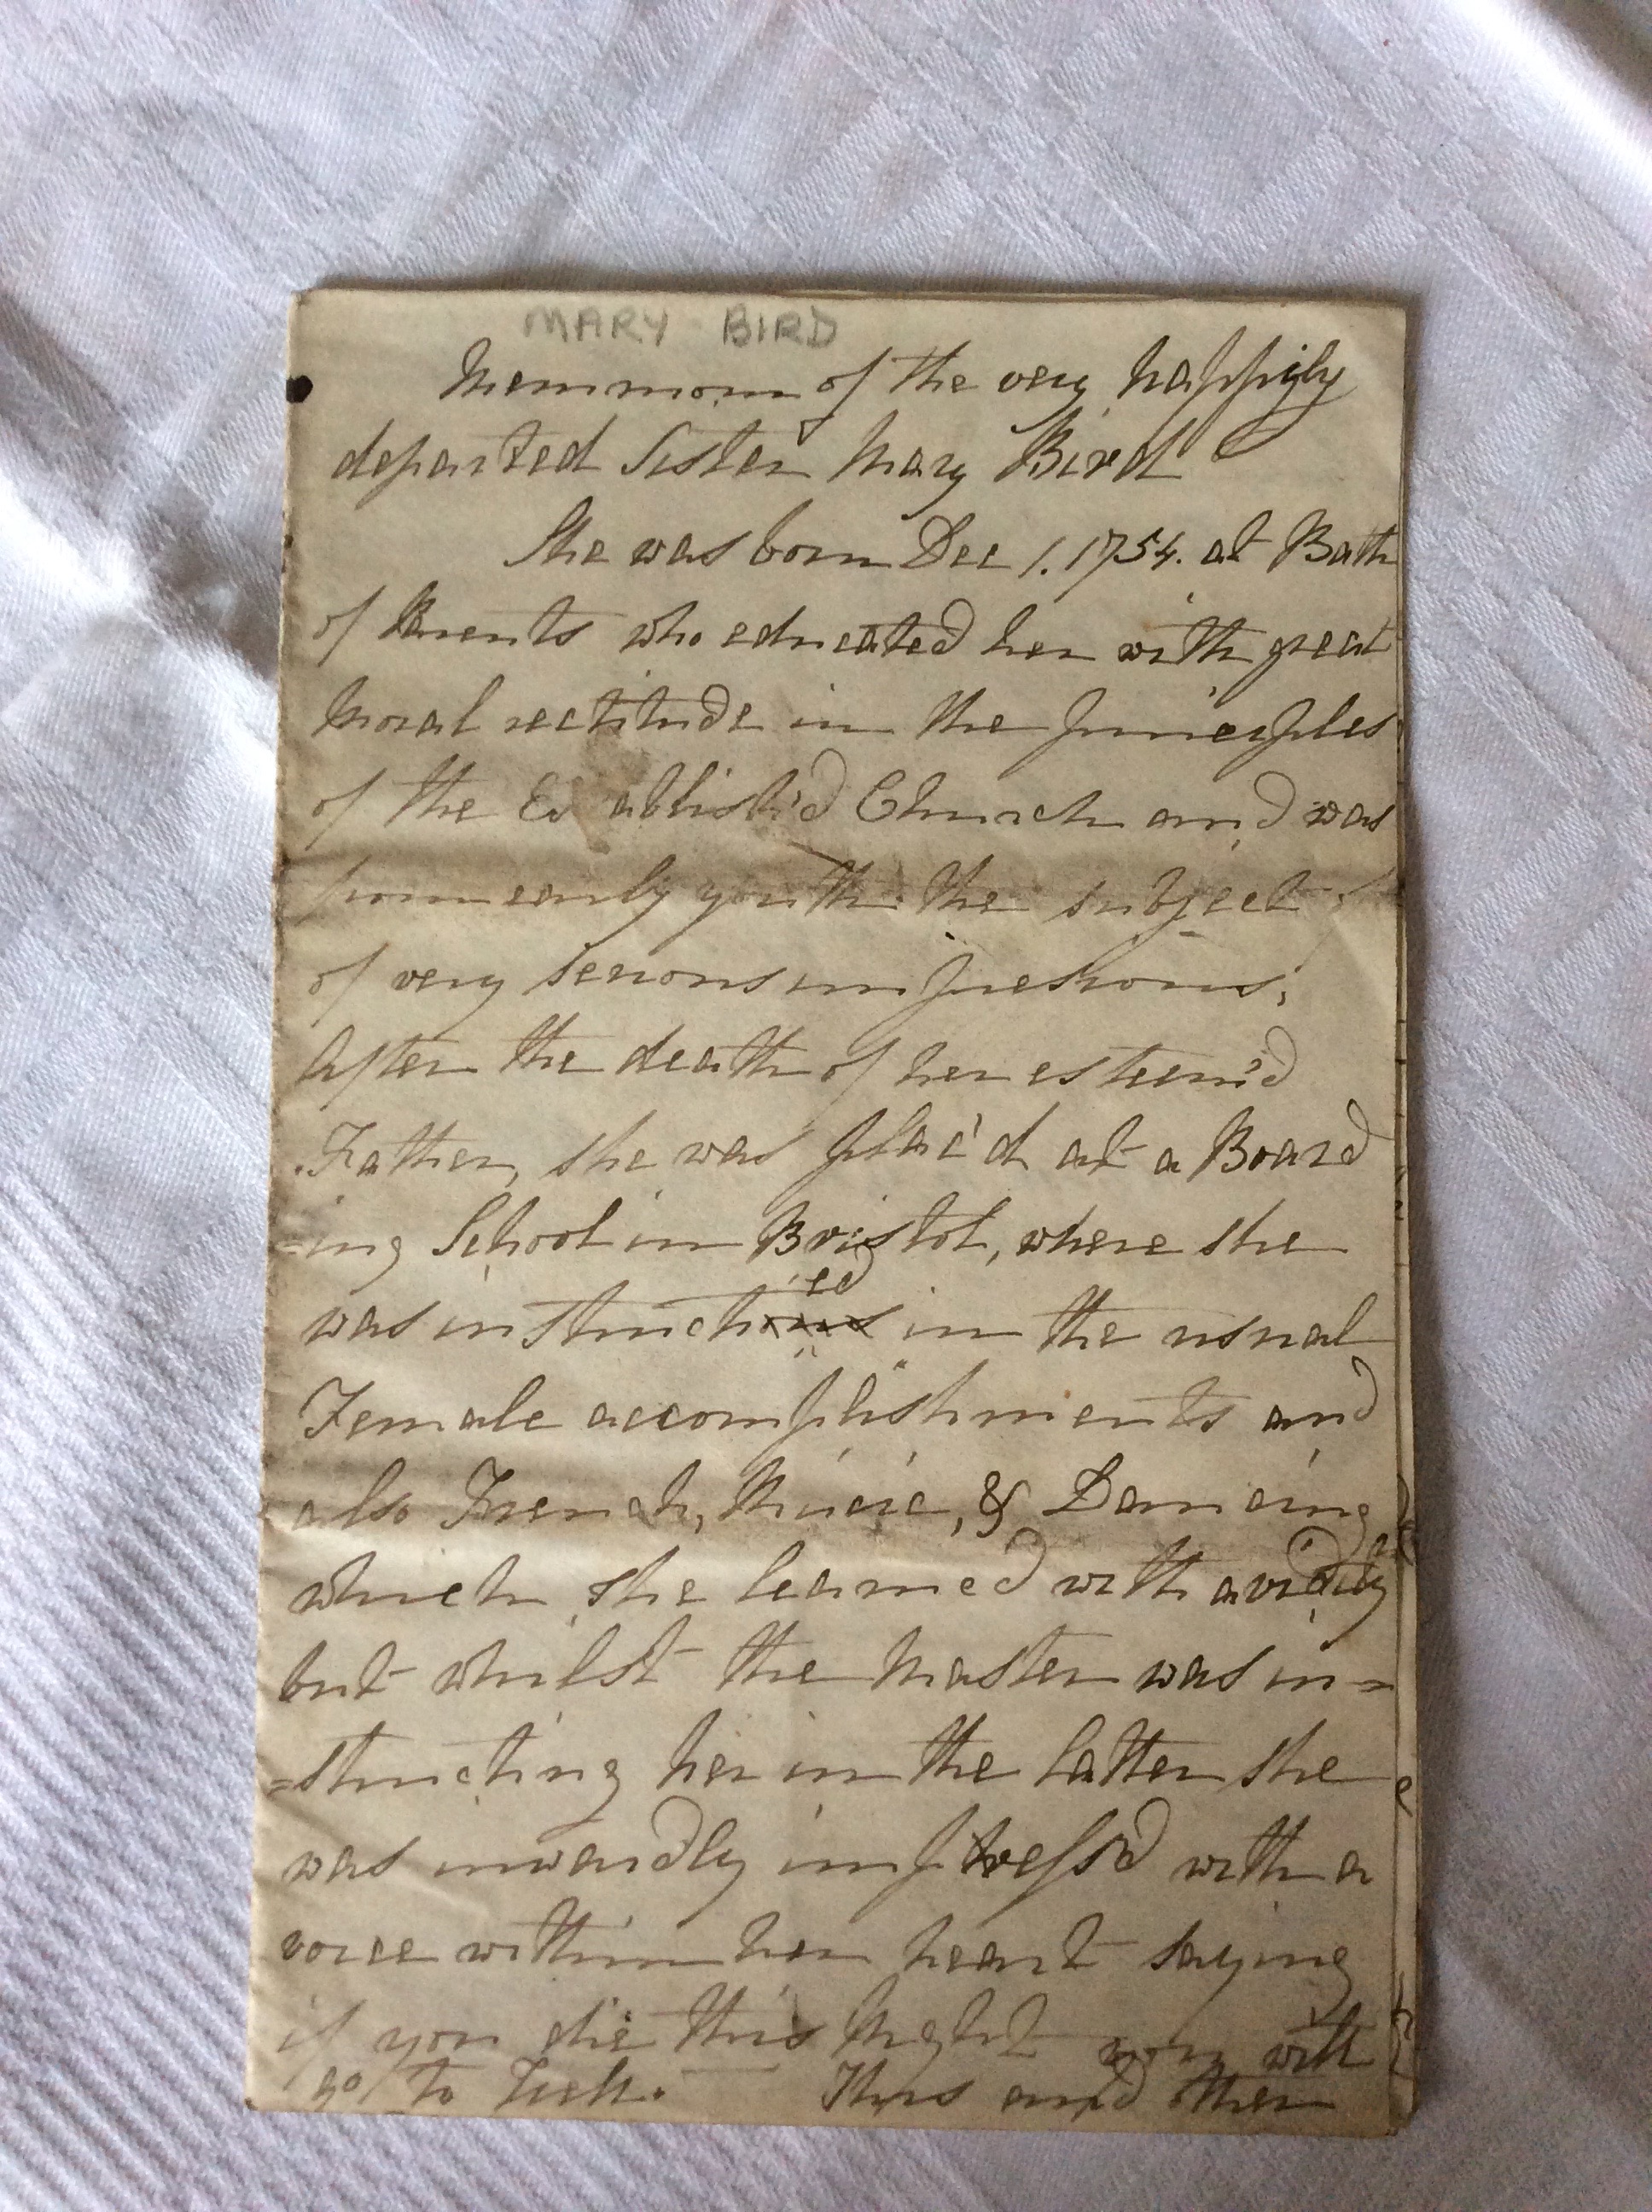 MARY BIRD
Memmom of the very happyly
departed Sister Mary Bird
She was born Dec 1. 1754. at Bath
of Parents who educated her with great
Moral rectitude in the principles
of the Establish'd Church and was
from early youth the subject
of very serious impressions,
After the death of her esteem'd
Father, she was plac'd at a Board
=ing School in Bristol, where she
ed
was instructions in the usual
Female accomplishments and
also French, Music, & Dancing
which she learned with avidity
but whilst the Master was in=
=structing her in the latter she
was inwardly impress'd with a
voice within her heart saying
if you die this Night you will
go to Hell. — This and other